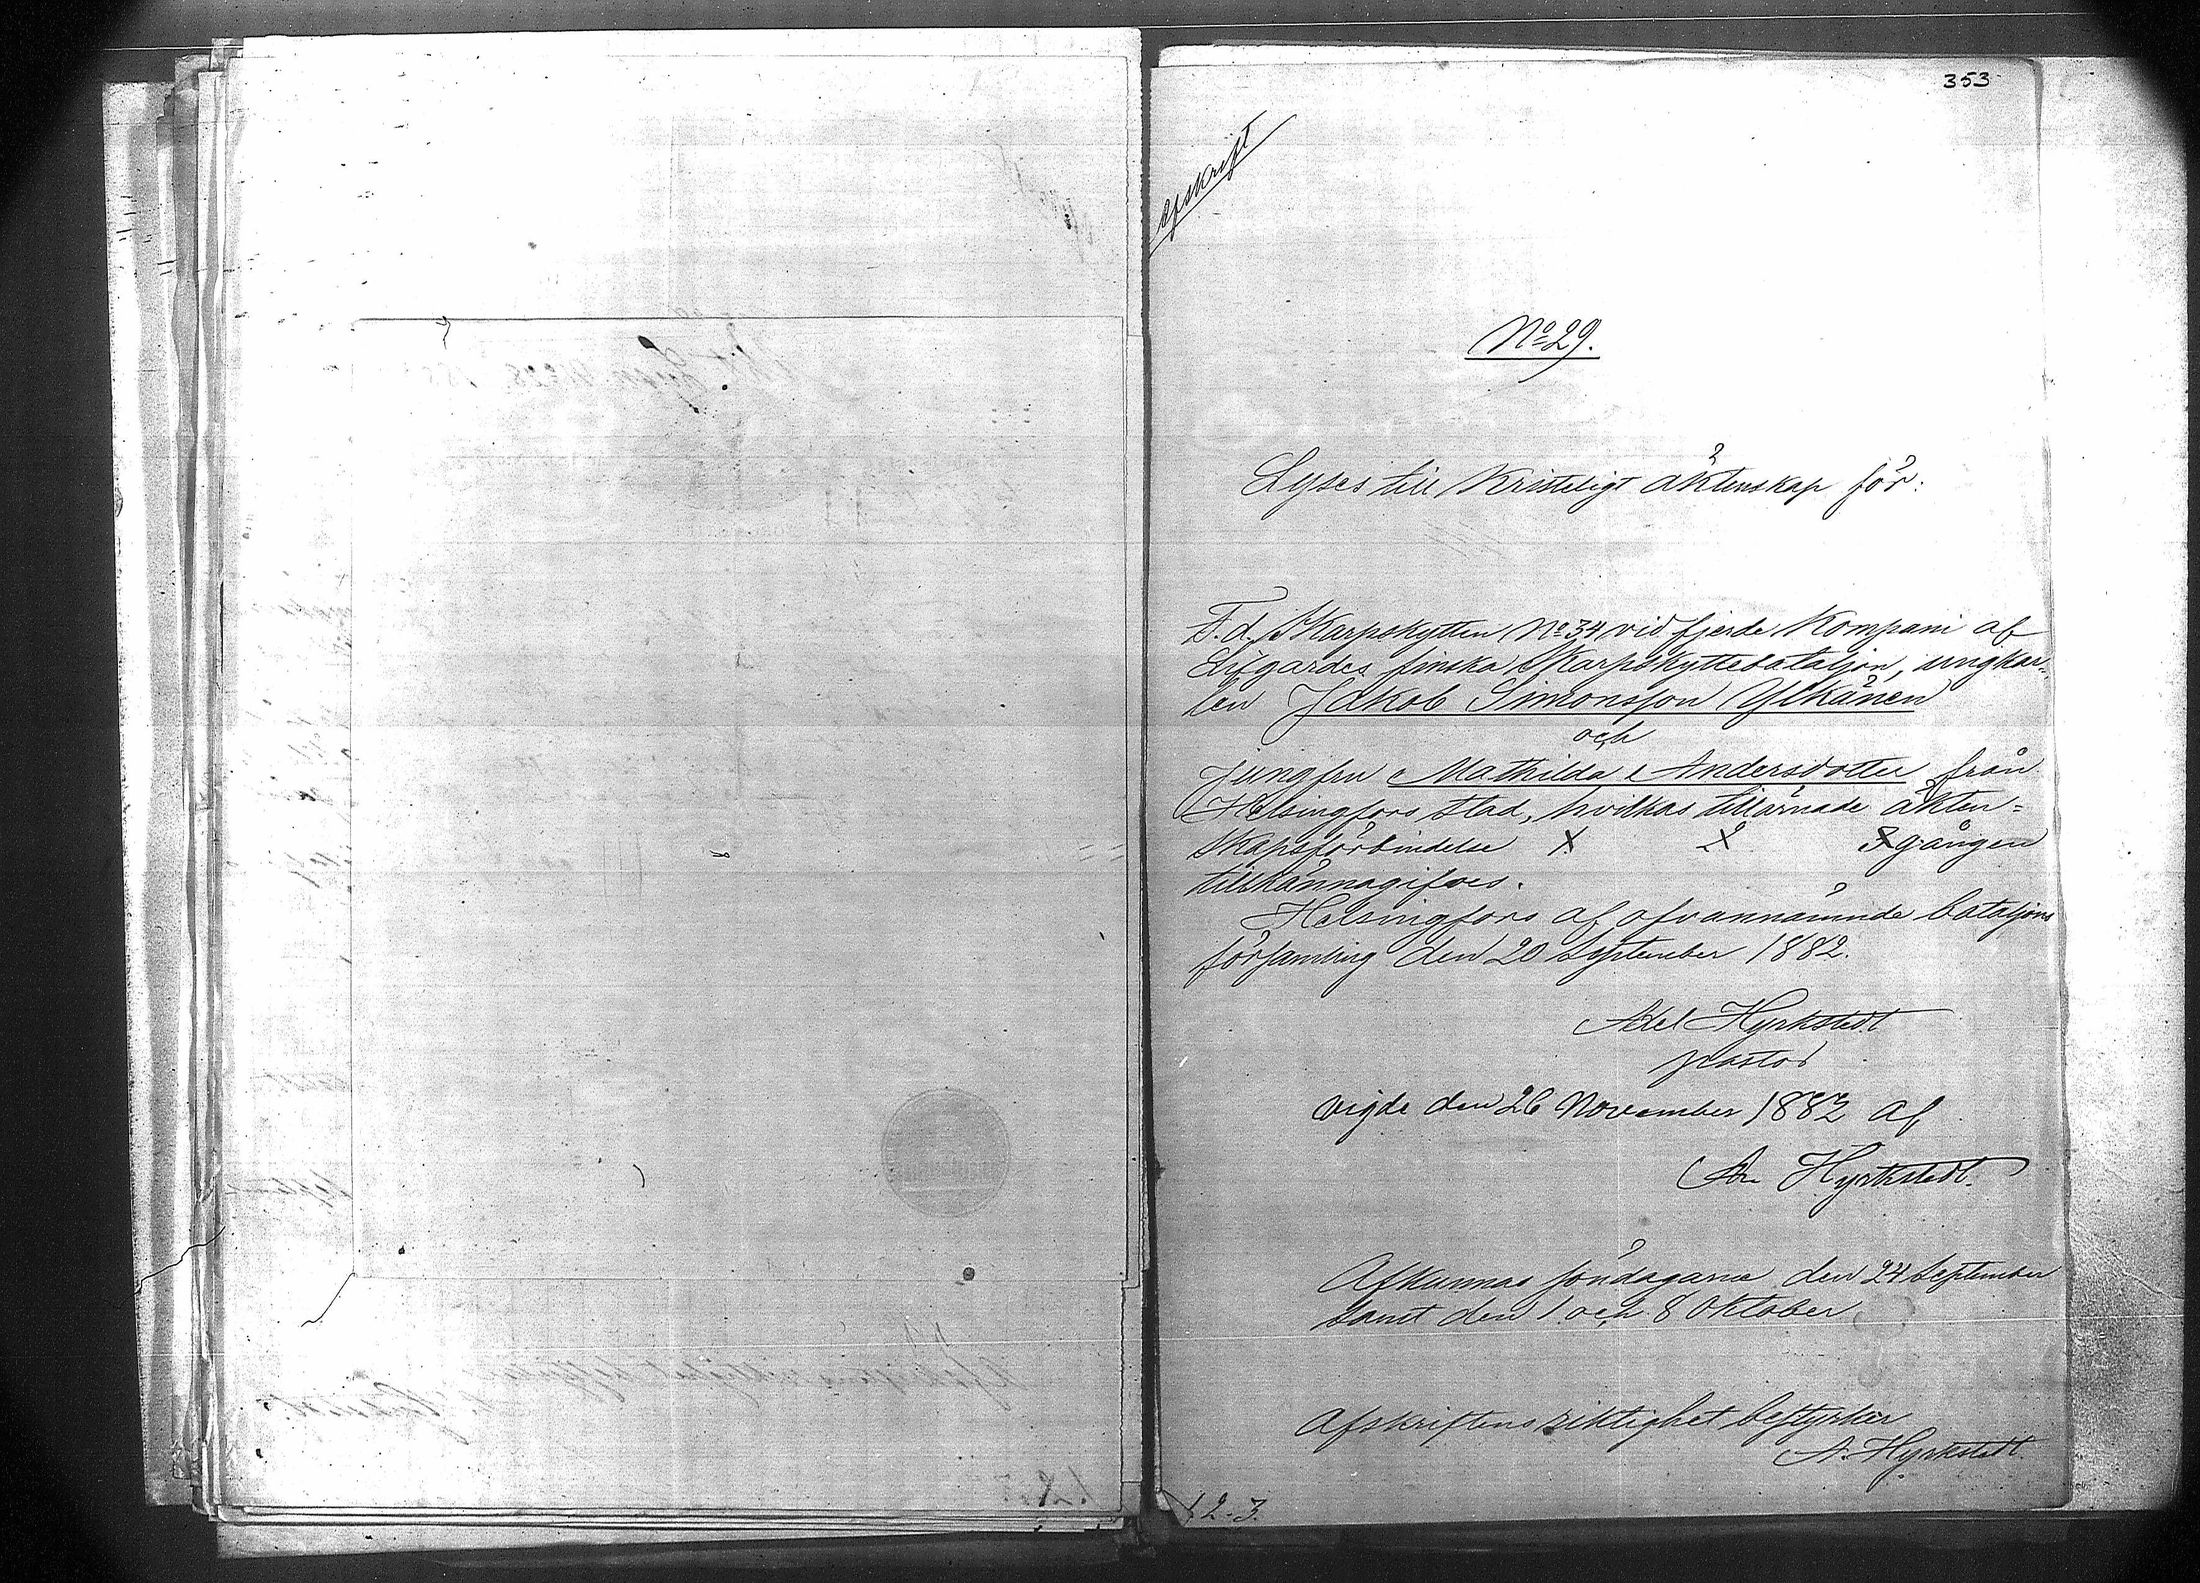 353
Afskrift
No 29.
Lyses till Kristeligt äktenskap för:
F. d. Skarpskytten No 34 vid fjerde Kompani af
Lifgardes finska Skarpskyttebataljon, ungkar-
len Jakob Simonsson Ylkänen
och
jungfru Mathilda Andersdotter från
Helsingfors stad, hvilkas tillärnade äkten=
skapsförbindelse 1. 2 3 gången
tillkännagifves.
Helsingfors af ofvannämnde bataljons
församling den 20 September 1882.
Axel Hyrkstedt
pastor
vigde den 26 November 1882 af
Ax Hyrkstedt.
Afkunnas söndagarne den 24 September
samt den 1 och 8 Oktober
Afskriftens riktighet bestyrker
A. Hyrkstedt.
1 2-3.